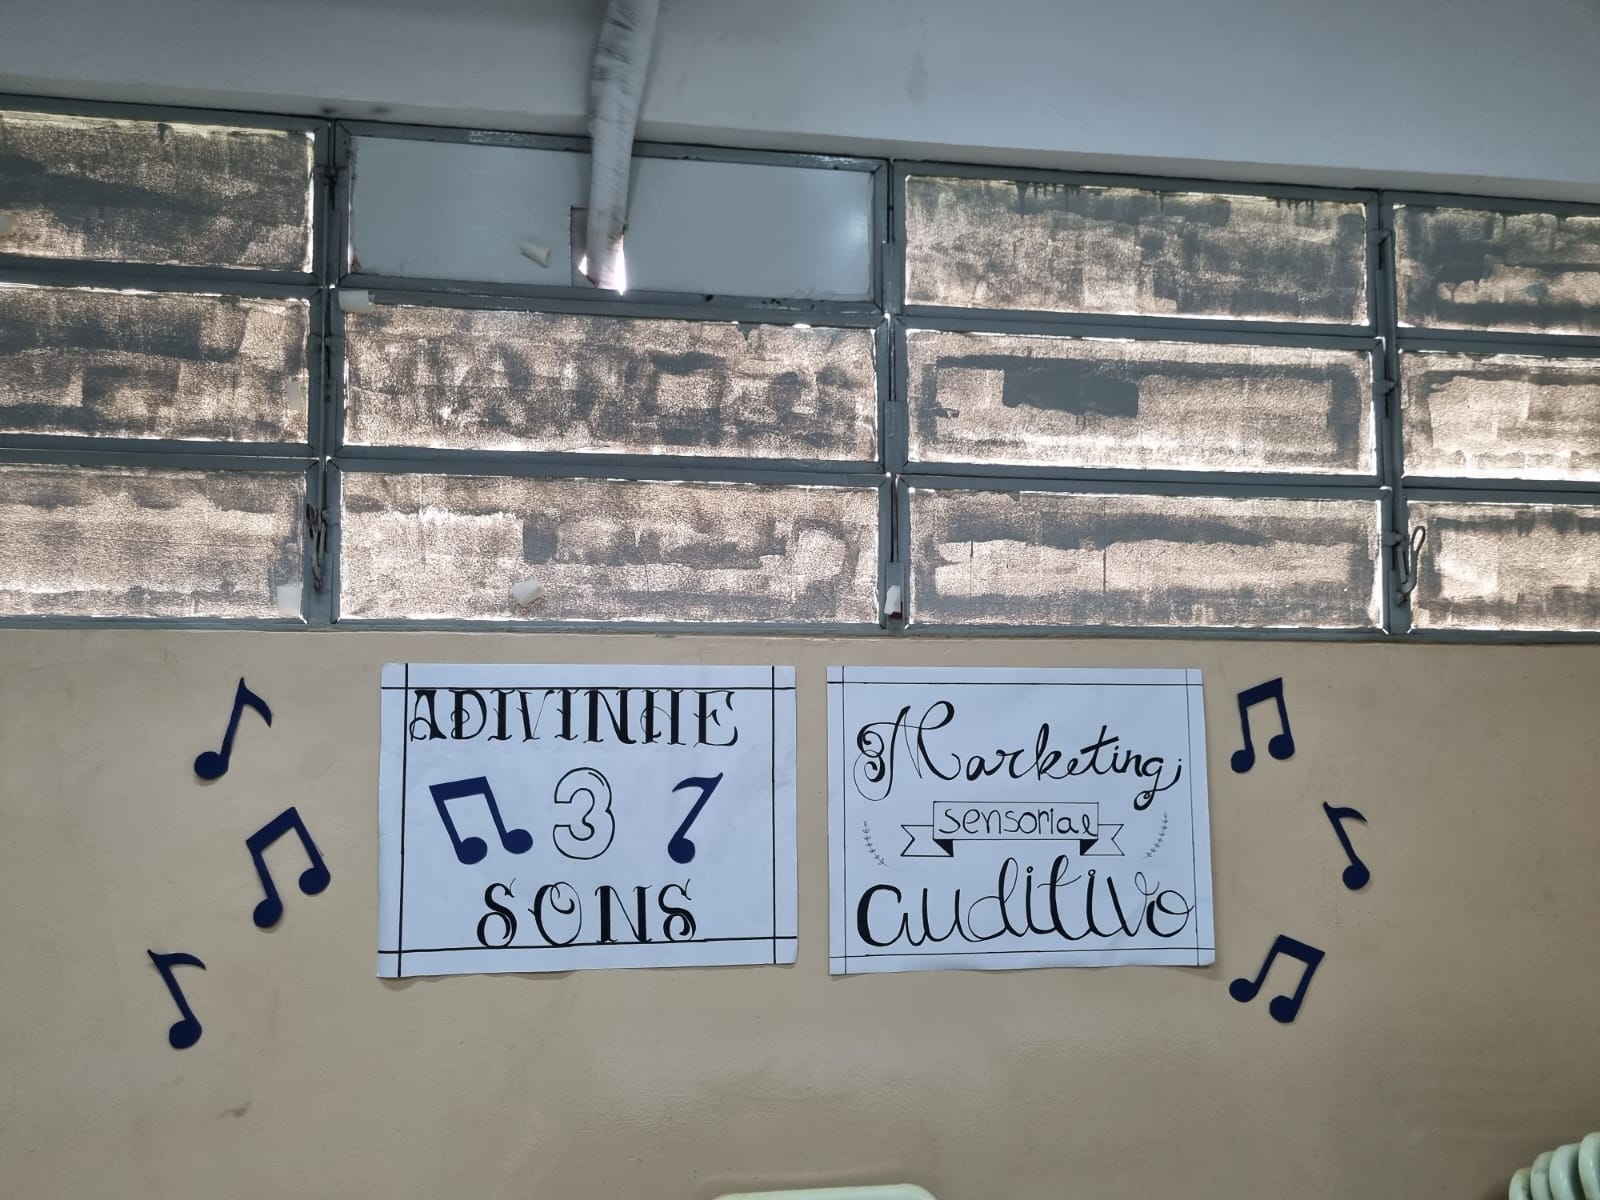 ADIVINHE
3
SONS
Marketing
sensorial
auditivo